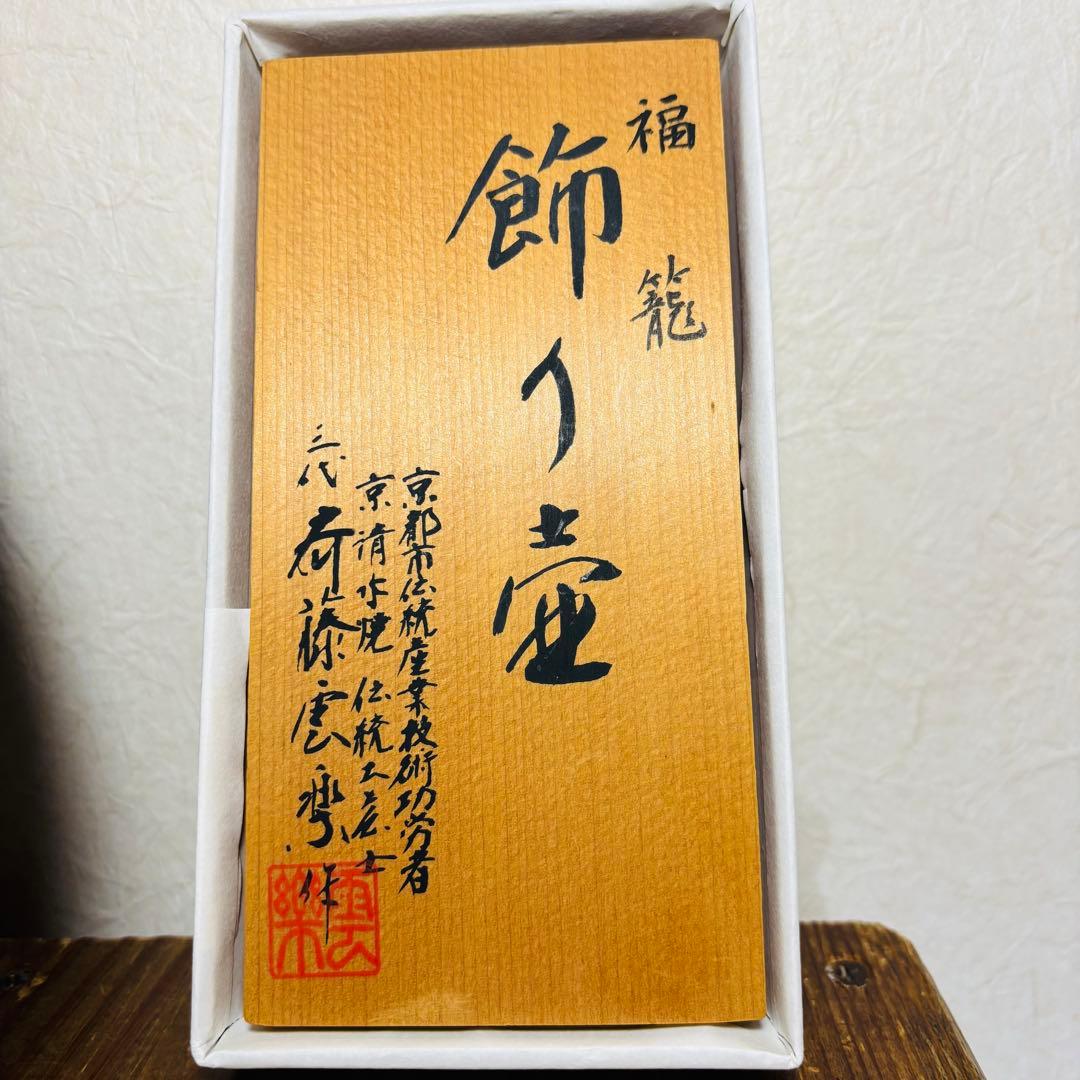 福籠
飾り壷
京都市伝統産業技術功労者
京清水焼 伝統工芸士
三代 斉藤雲楽作
雲楽